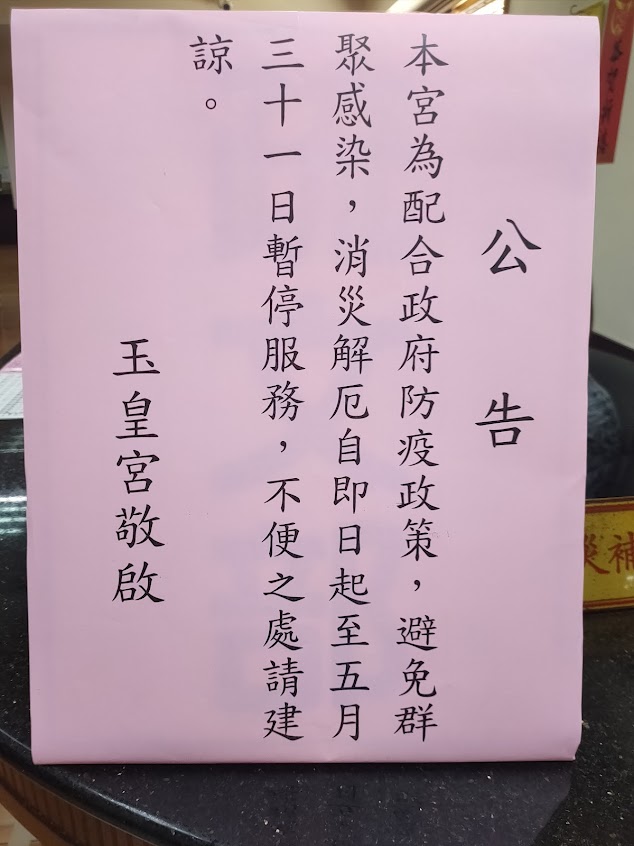 公告
本宮為配合政府防疫政策，避免群
聚感染，消災解厄自即日起至五月
三十一日暫停服務，不便之處請建
諒。
玉皇宮敬啟
災補